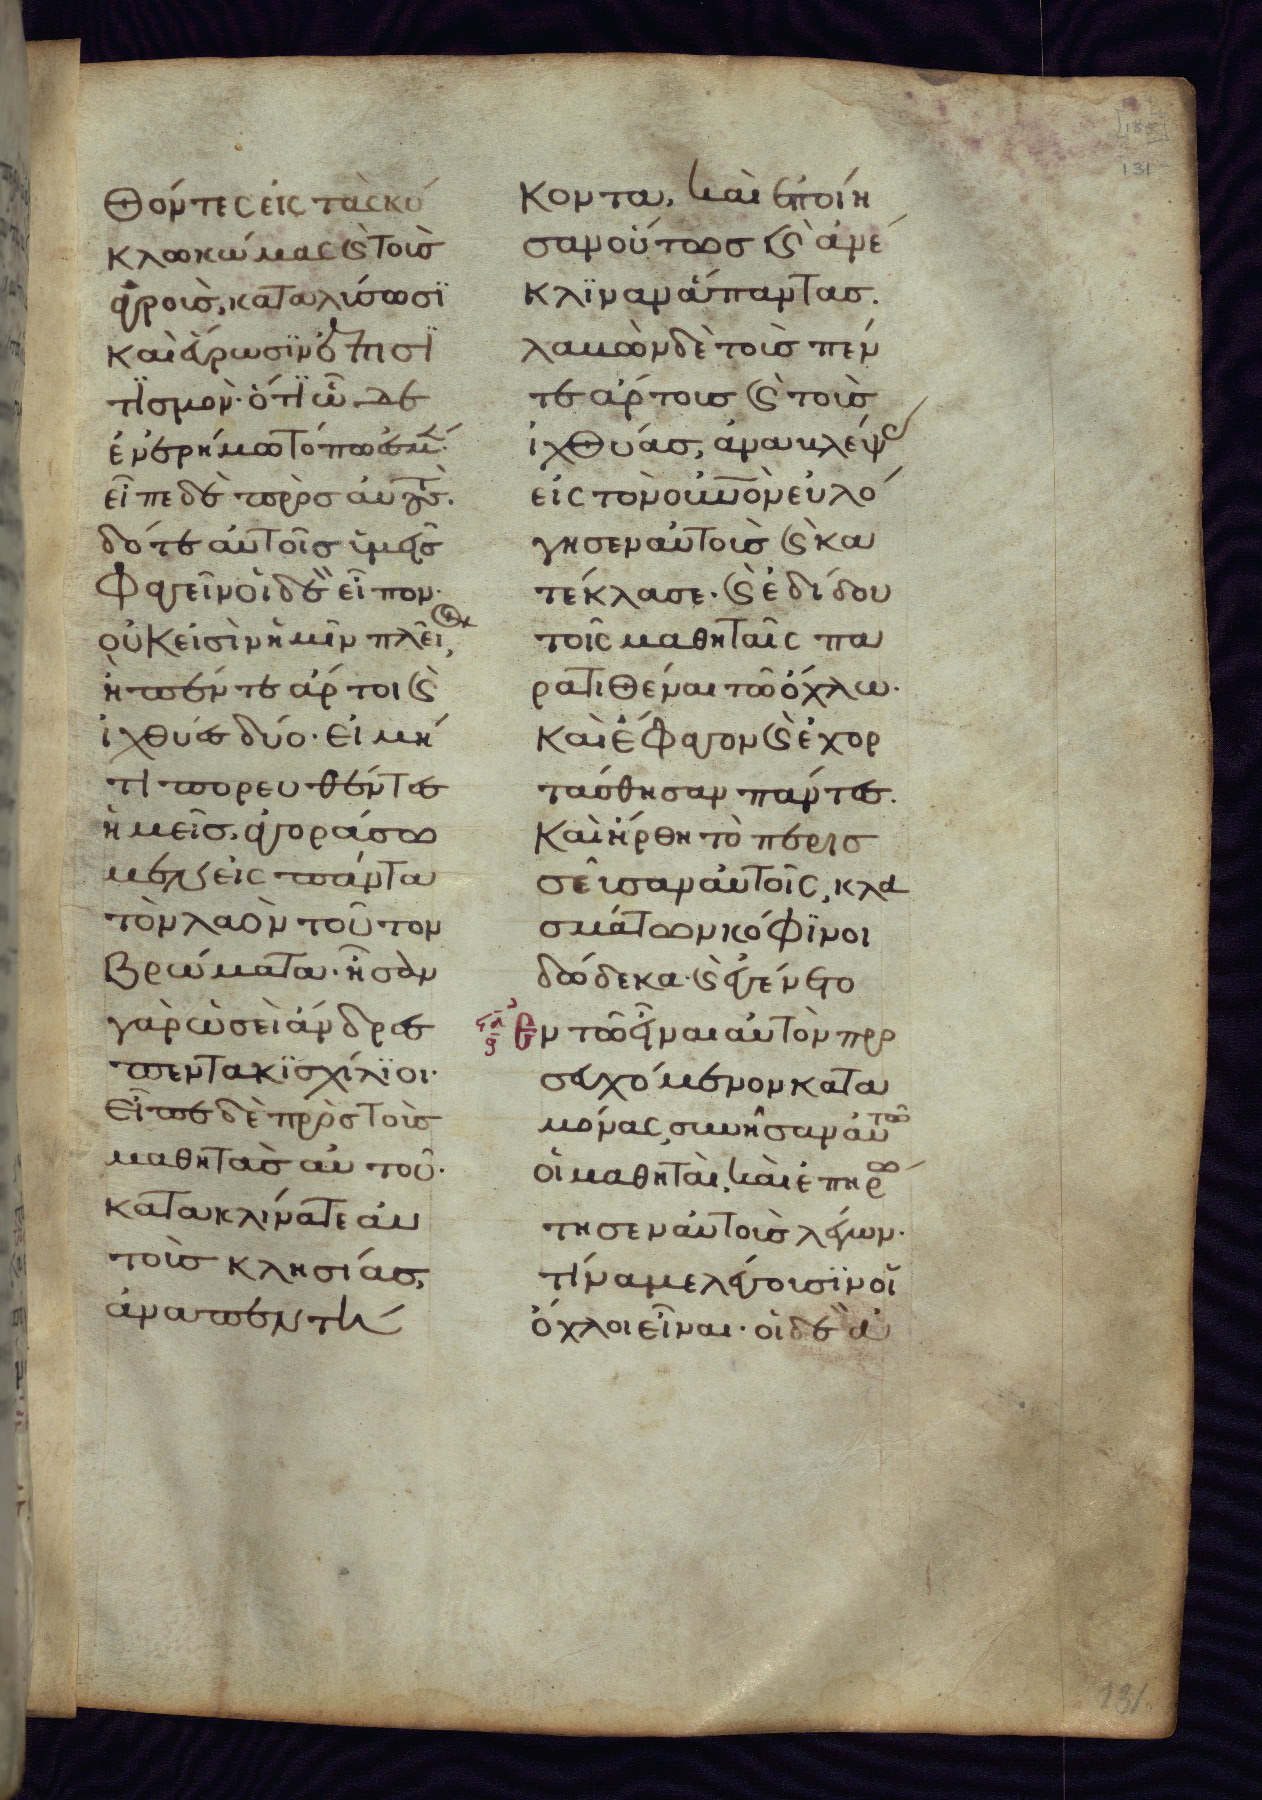 θόντες εἰς τὰς κύ
κλω κώμας ϛ τοὺς
ἀγροὺς, καταλύσωσϊ
καὶ εὕρωσϊν ἐπισϊ
τϊσμὸν· ὅτϊ ὧδε
ἐν ἐρήμω τόπω ἐσμέν·
εἶπε δὲ πρὸς αὐτούς.
δότε αὐτοῖς ὑμεῖς
φαγεῖν οἱ δὲ εἶπον·
οὐκ εἰσὶν ἡμῖν πλεῖον,
ἢ πέντε ἄρτοι ϛ
ἰχθύες δύο· εἰ μή
τι πορευθέντες
ἡμεῖς, ἀγοράσω
μεν εἰς πάντα
τὸν λαὸν τοῦτον
βρώματα· ἦσαν
γὰρ ὡσεὶ ἄνδρες
πεντακϊσχίλϊοι·
εἶπε δὲ πρὸς τοὺς
μαθητὰς αὐτοῦ·
κατακλίνατε αὐ
τοὺς κλησίας,
ἀνὰ πεντή
κοντα, καὶ ἐποίη
σαν οὕτως ϛ ἀνέ
κλϊναν ἅπαντας.
λαβὼν δὲ τοὺς πέν
τε ἄρτους ϛ τοὺς
ἰχθύας, ἀναβλέψας
εἰς τὸν οὐνὸν εὐλό
γησεν αὐτοὺς ϛ κα
τέκλασε· ϛ ἐδίδου
τοῖς μαθηταῖς πα
ρατιθέναι τῶ ὄχλω·
καὶ ἔφαγον ϛ ἐχορ
τάσθησαν πάντες.
καὶ ἤρθη τὸ περισ
σεῦσαν αὐτοῖς, κλα
σμάτων κόφϊνοι
δώδεκα· ϛ ἐγένετο
ἐν τῶ εἶναι αὐτὸν προ
σευχόμενον κατα
μόνας, συνῆσαν αὐτῶ
οἱ μαθηταὶ, καὶ ἐπηρώ
τησεν αὐτοὺς λέγων·
τίνα με λέγουσϊν οἱ
ὄχλοι εἶναι· οἱ δὲ ἀ
131
131